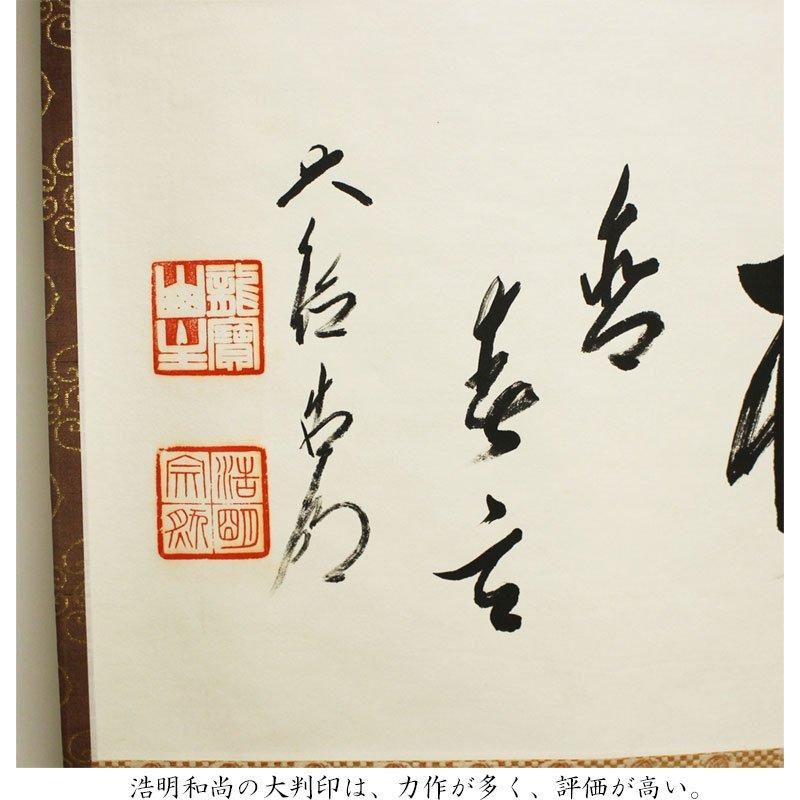 香
春
大徳浩明
龍寶
山主
浩明
宗
浩明和尚の大判印は、力作が多く、評価が高い。